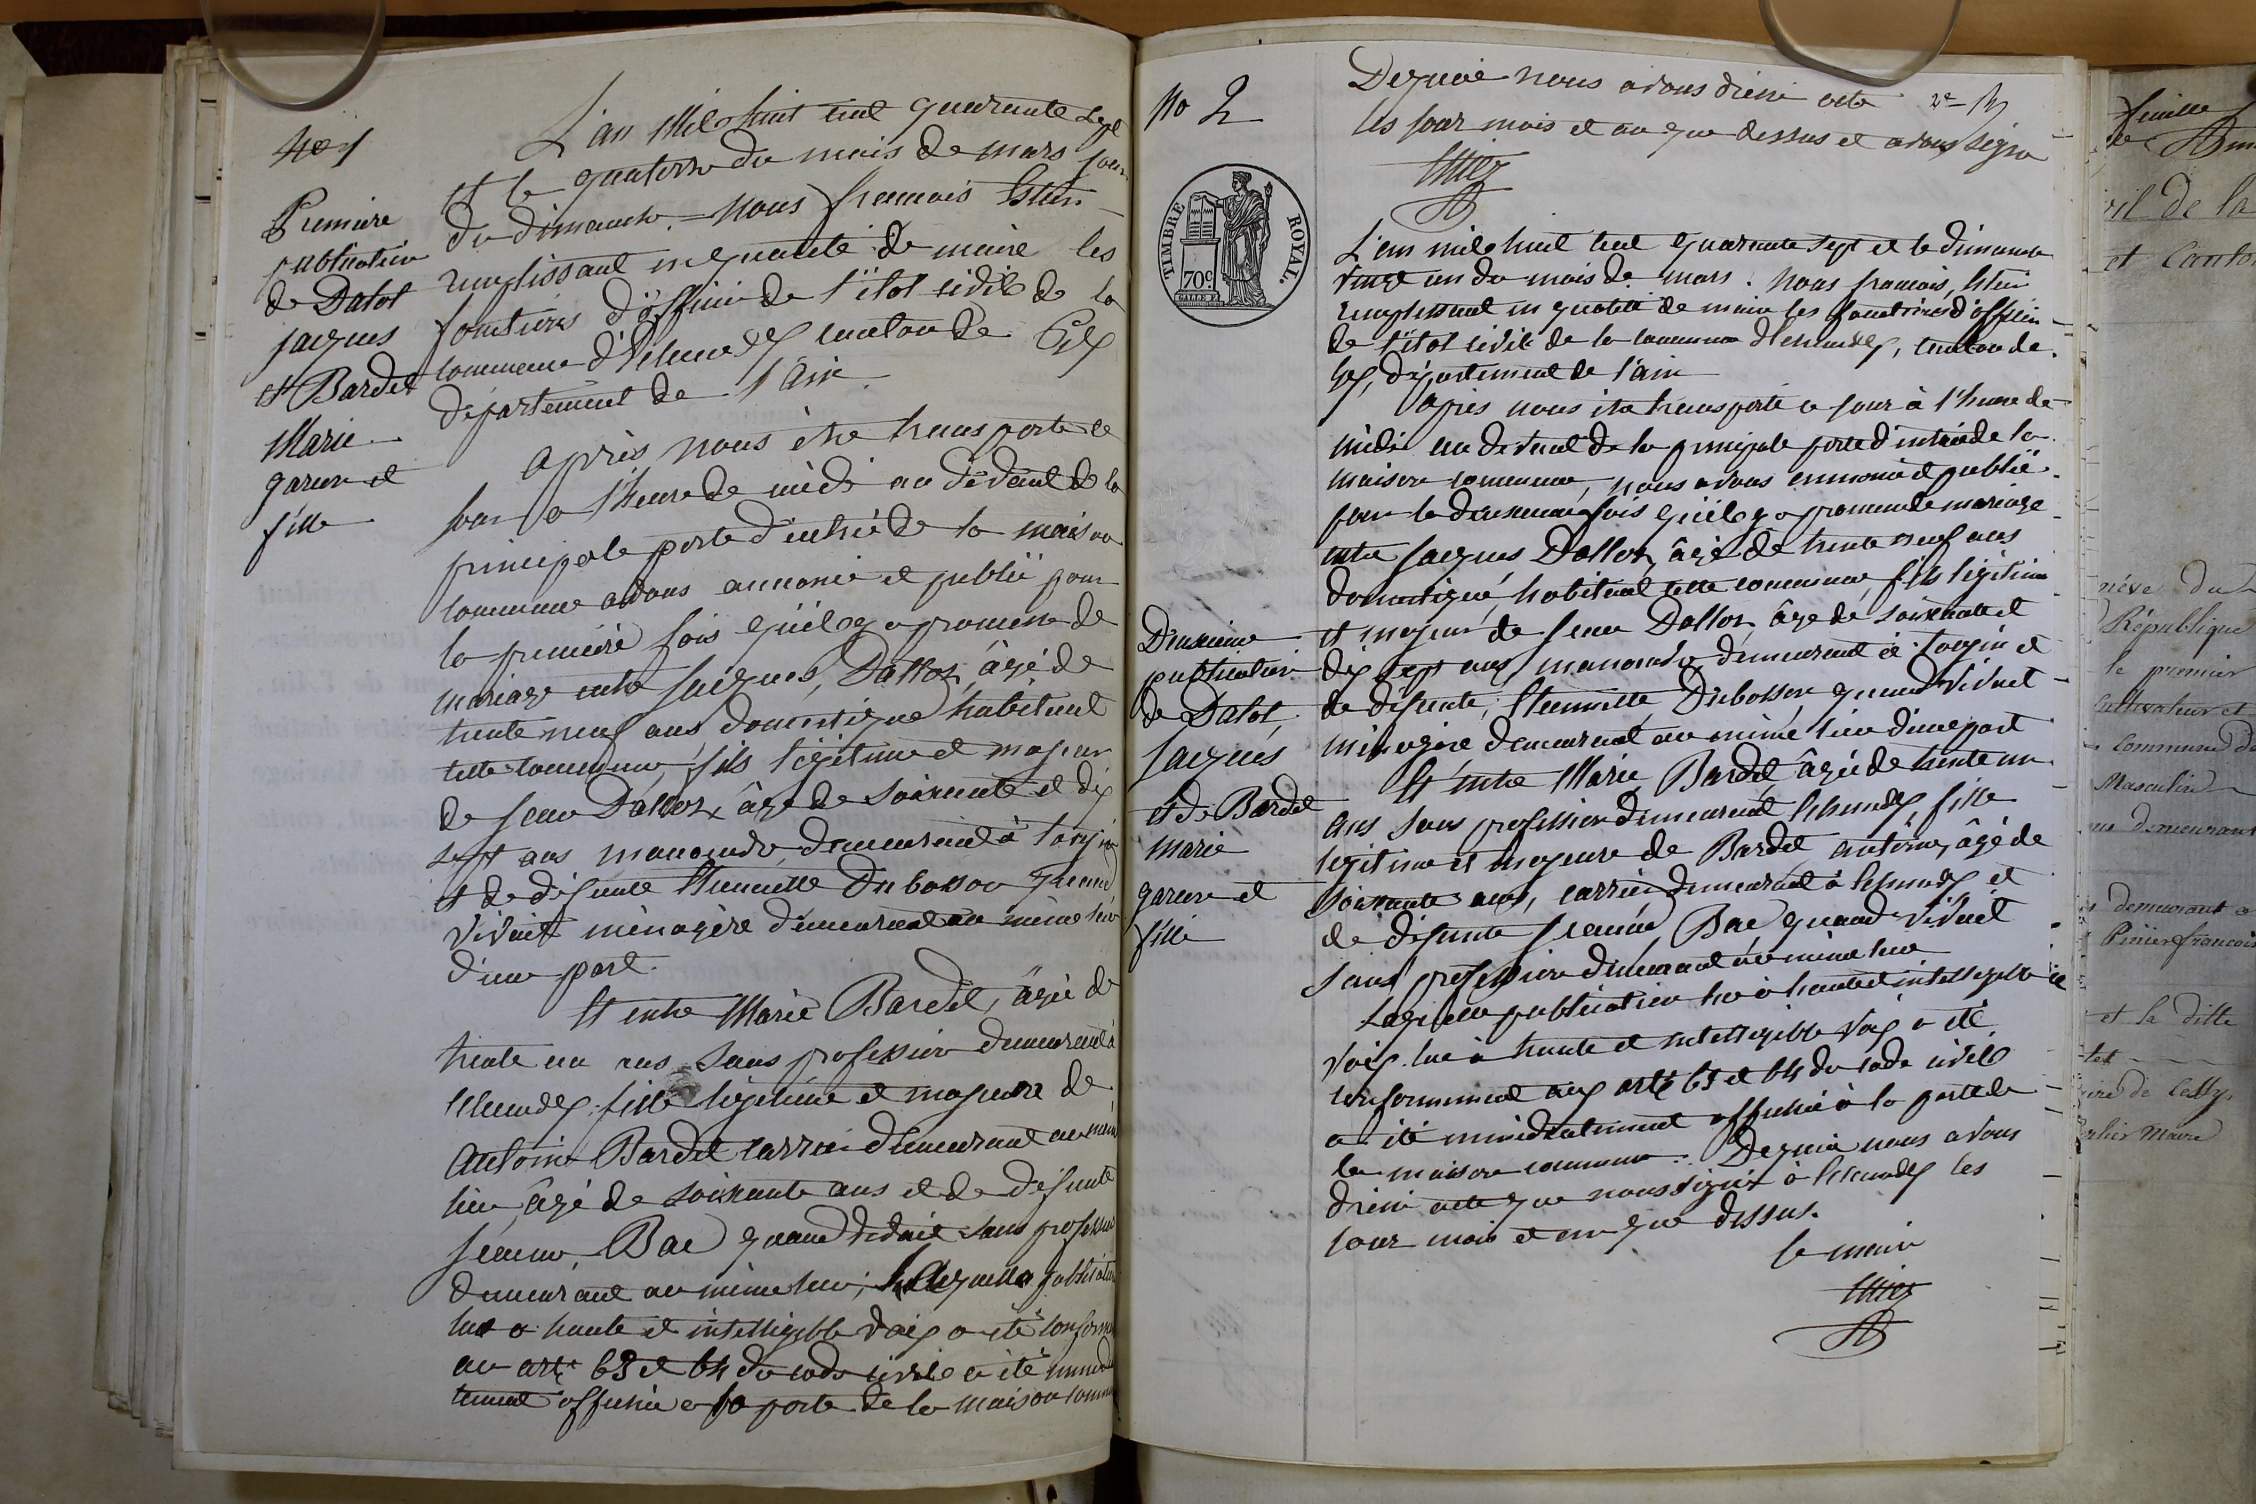 No 1
Premiere
publication
de Dalot
jacques
et Bardet
Marie
garcon et
fille
L'an Mil huit cent quarante sept
et le quatorze du mois de mars jour
du dimanche. Nous francois
remplissant en qualité de maire les
fonctions d'officier de l'état civil de la
commune d'Echenevex canton de Gex
département de l'Ain.
Après nous être transporté ce
jour a l'heure de midi au devant de la
principale porte d'entrée de la maison
commune avons annoncé et publié pour
la première fois qu'il y a promesse de
mariage entre jacques Dalloz, âgé de
trente neuf ans domestique habitant
cette commune, fils légitime et majeur
de jean Dalloz, âgé de soixante et dix
sept ans manoeuvre, demeurant à
et de défunte Etiennette Dubosson quand
vivait ménagère demeurant au même lieu
d'une part.
Et entre Marie Bardet, âgée de
trente un ans sans profession demeurant à
Echenevex fille légitime et majeure de
Antoine Bardet carrier demeurant au même
lieu, âgé de soixante ans et de défunte
Bac quand vivait sans profession
demeurant au même lieu, Laquelle publication
lue a haute et intelligible voix a été
au arte 63 et 64 du code civil a été
affichée a la porte de la maison
No 2
Dequoi nous avons dressé acte
les jour mois et an que dessus et avons signé
TIMBRE ROYAL.
70c
L'an mil huit cent quarante sept et le dimanche
vingt un du mois de mars. Nous francois
remplissant en qualité de maire les fonctions d'officier
de l'état civil de la commune d'Echenevex, canton de
Gex, département de l'ain
Après nous être transporté ce jour à l'heure de
midi au devant de la principale porte d'entrée de la
maison commune, nous avons annoncé et publié
pour la deuxieme fois qu'il y a promesse de mariage
entre jacques Dalloz, âgé de trente neuf ans
domestique, habitant cette commune, fils légitime
et majeur de jean Dalloz, âgé de soixante et
dix sept ans, manoeuvre, demeurant à et
de défunte, Etiennette Dubosson, quand vivait
ménagère demeurant au même lieu d'une part
Et entre Marie Bardet, âgée de trente un
ans sans profession demeurant Echenevex, fille
legitime et majeure de Bardet antoine, âgé de
soixante ans, carrier, demeurant à Echenevex et
de défunte Bac quand vivait
sans profession demeurant au même lieu
Laquelle publication lue à haute et intelligible
voix lue à haute et intelligible voix a été
conformément aux arte 63 et 64 du code civil
a été immédiatement affichée à la porte de
la maison commune. Dequoi nous avons
dressé acte que nous signé à Echenevex les
jour mois et an que dessus.
le maire
Deuxième
publication
de Dalot,
jacques
et de Bardet
marie
garcon et
fille
feuille
de la
et Canton
du
République
le premier
Cultivateur et
commune de
Masculin
demeurant
demeurant a
francois
et la ditte
de Cessy
maire